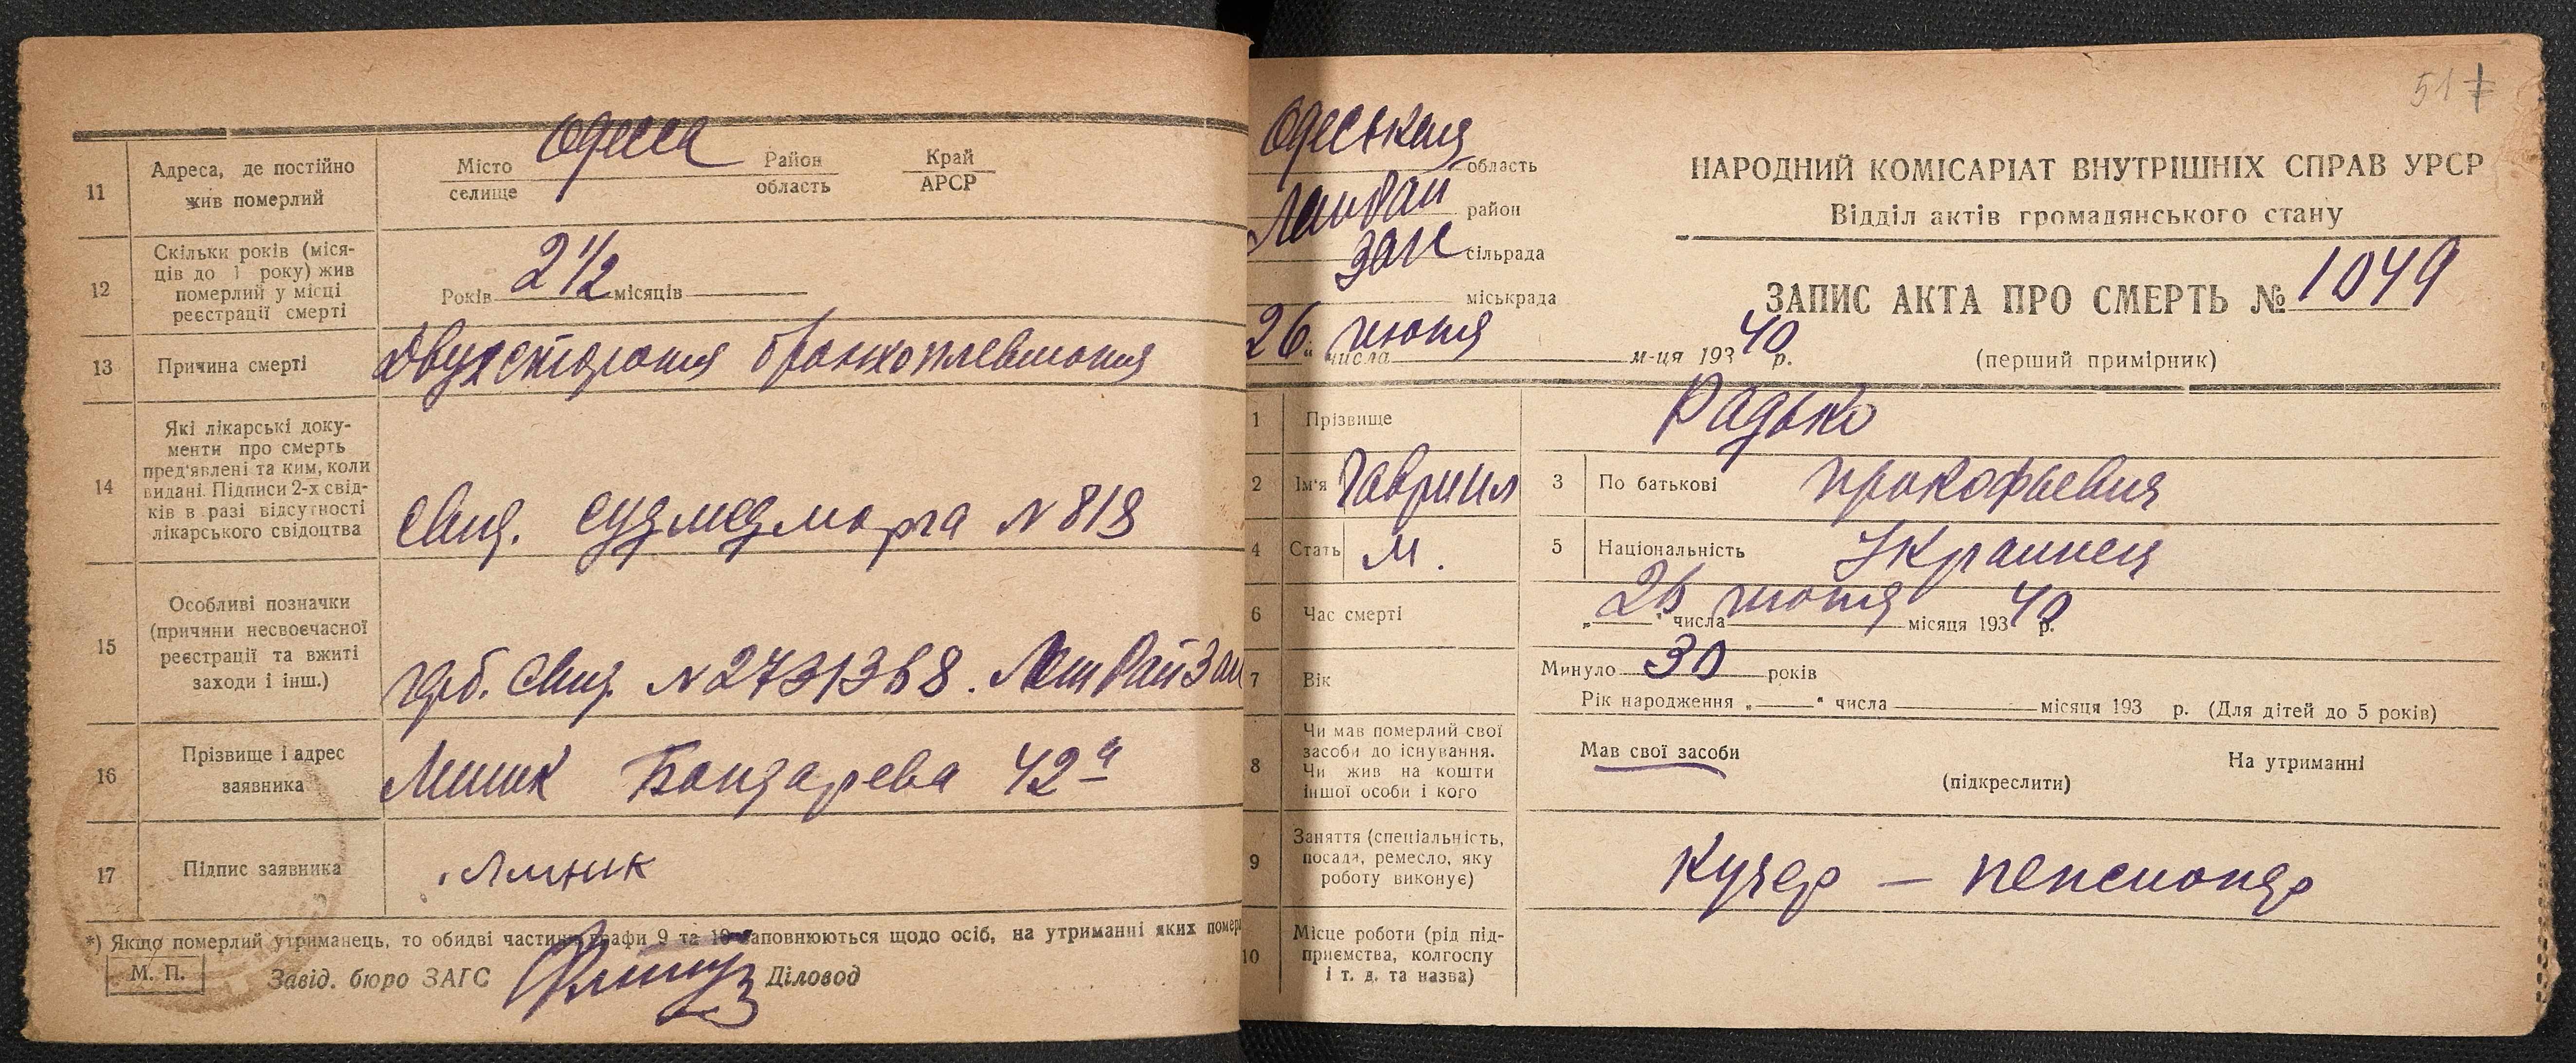 11
Адреса, де постійно
жив померлий
Місто
селище
Одесса
Район
область
Край
АРСР
12
Скільки років (міся-
ців до 1 року) жив
померлий у місці
реєстрації смерті
Років 2 1/2 місяців
13
Причина смерті
Двухстороняя бронхопневмония
14
Які лікарські доку-
менти про смерть
пред'явлені та ким, коли
видані. Підписи 2-х свід-
ків в разі відсутності
лікарського свідоцтва
Свид. судмедморга N 818
15
Особливі позначки
(причини несвоєчасної
реєстрації та вжиті
заходи і інш.)
грб. свид. N 2731368. Лен Рай Заг
16
Прізвище і адрес
заявника
Бондарева 42а
17
Підпис заявника
*) Якщо померлий утриманець, то обидві частини графи 9 та 10 заповнюються щодо осіб, на утриманні яких помер
М. П.
Завід. бюро ЗАГС
Діловод
517
Одеськая
область
Ленрай
район
ЗАГС
сільрада
міськрада
26 " числа июня м-ця 193 40 р.
НАРОДНИЙ КОМІСАРІАТ ВНУТРІШНІХ СПРАВ УРСР
Відділ актів громадянського стану
ЗАПИС АКТА ПРО СМЕРТЬ № 1049
(перший примірник)
1
Прізвище
Радько
2
Ім'я
Гавриил
3
По батькові
Прокофьевич
4
Стать
М.
5
Національність
Украинец
6
Час смерті
" 26 " числа июня місяця 193 40 р.
7
Вік
Минуло 30 років
Рік народження " " числа місяця 193 р. (Для дітей до 5 років)
8
Чи мав померлий свої
засоби до існування.
Чи жив на кошти
іншої особи і кого
Мав свої засоби
(підкреслити)
На утриманні
9
Заняття (спеціальність,
посада, ремесло, яку
роботу виконує)
Кучер — пенсионер
10
Місце роботи (рід під-
приємства, колгоспу
і т. д. та назва)